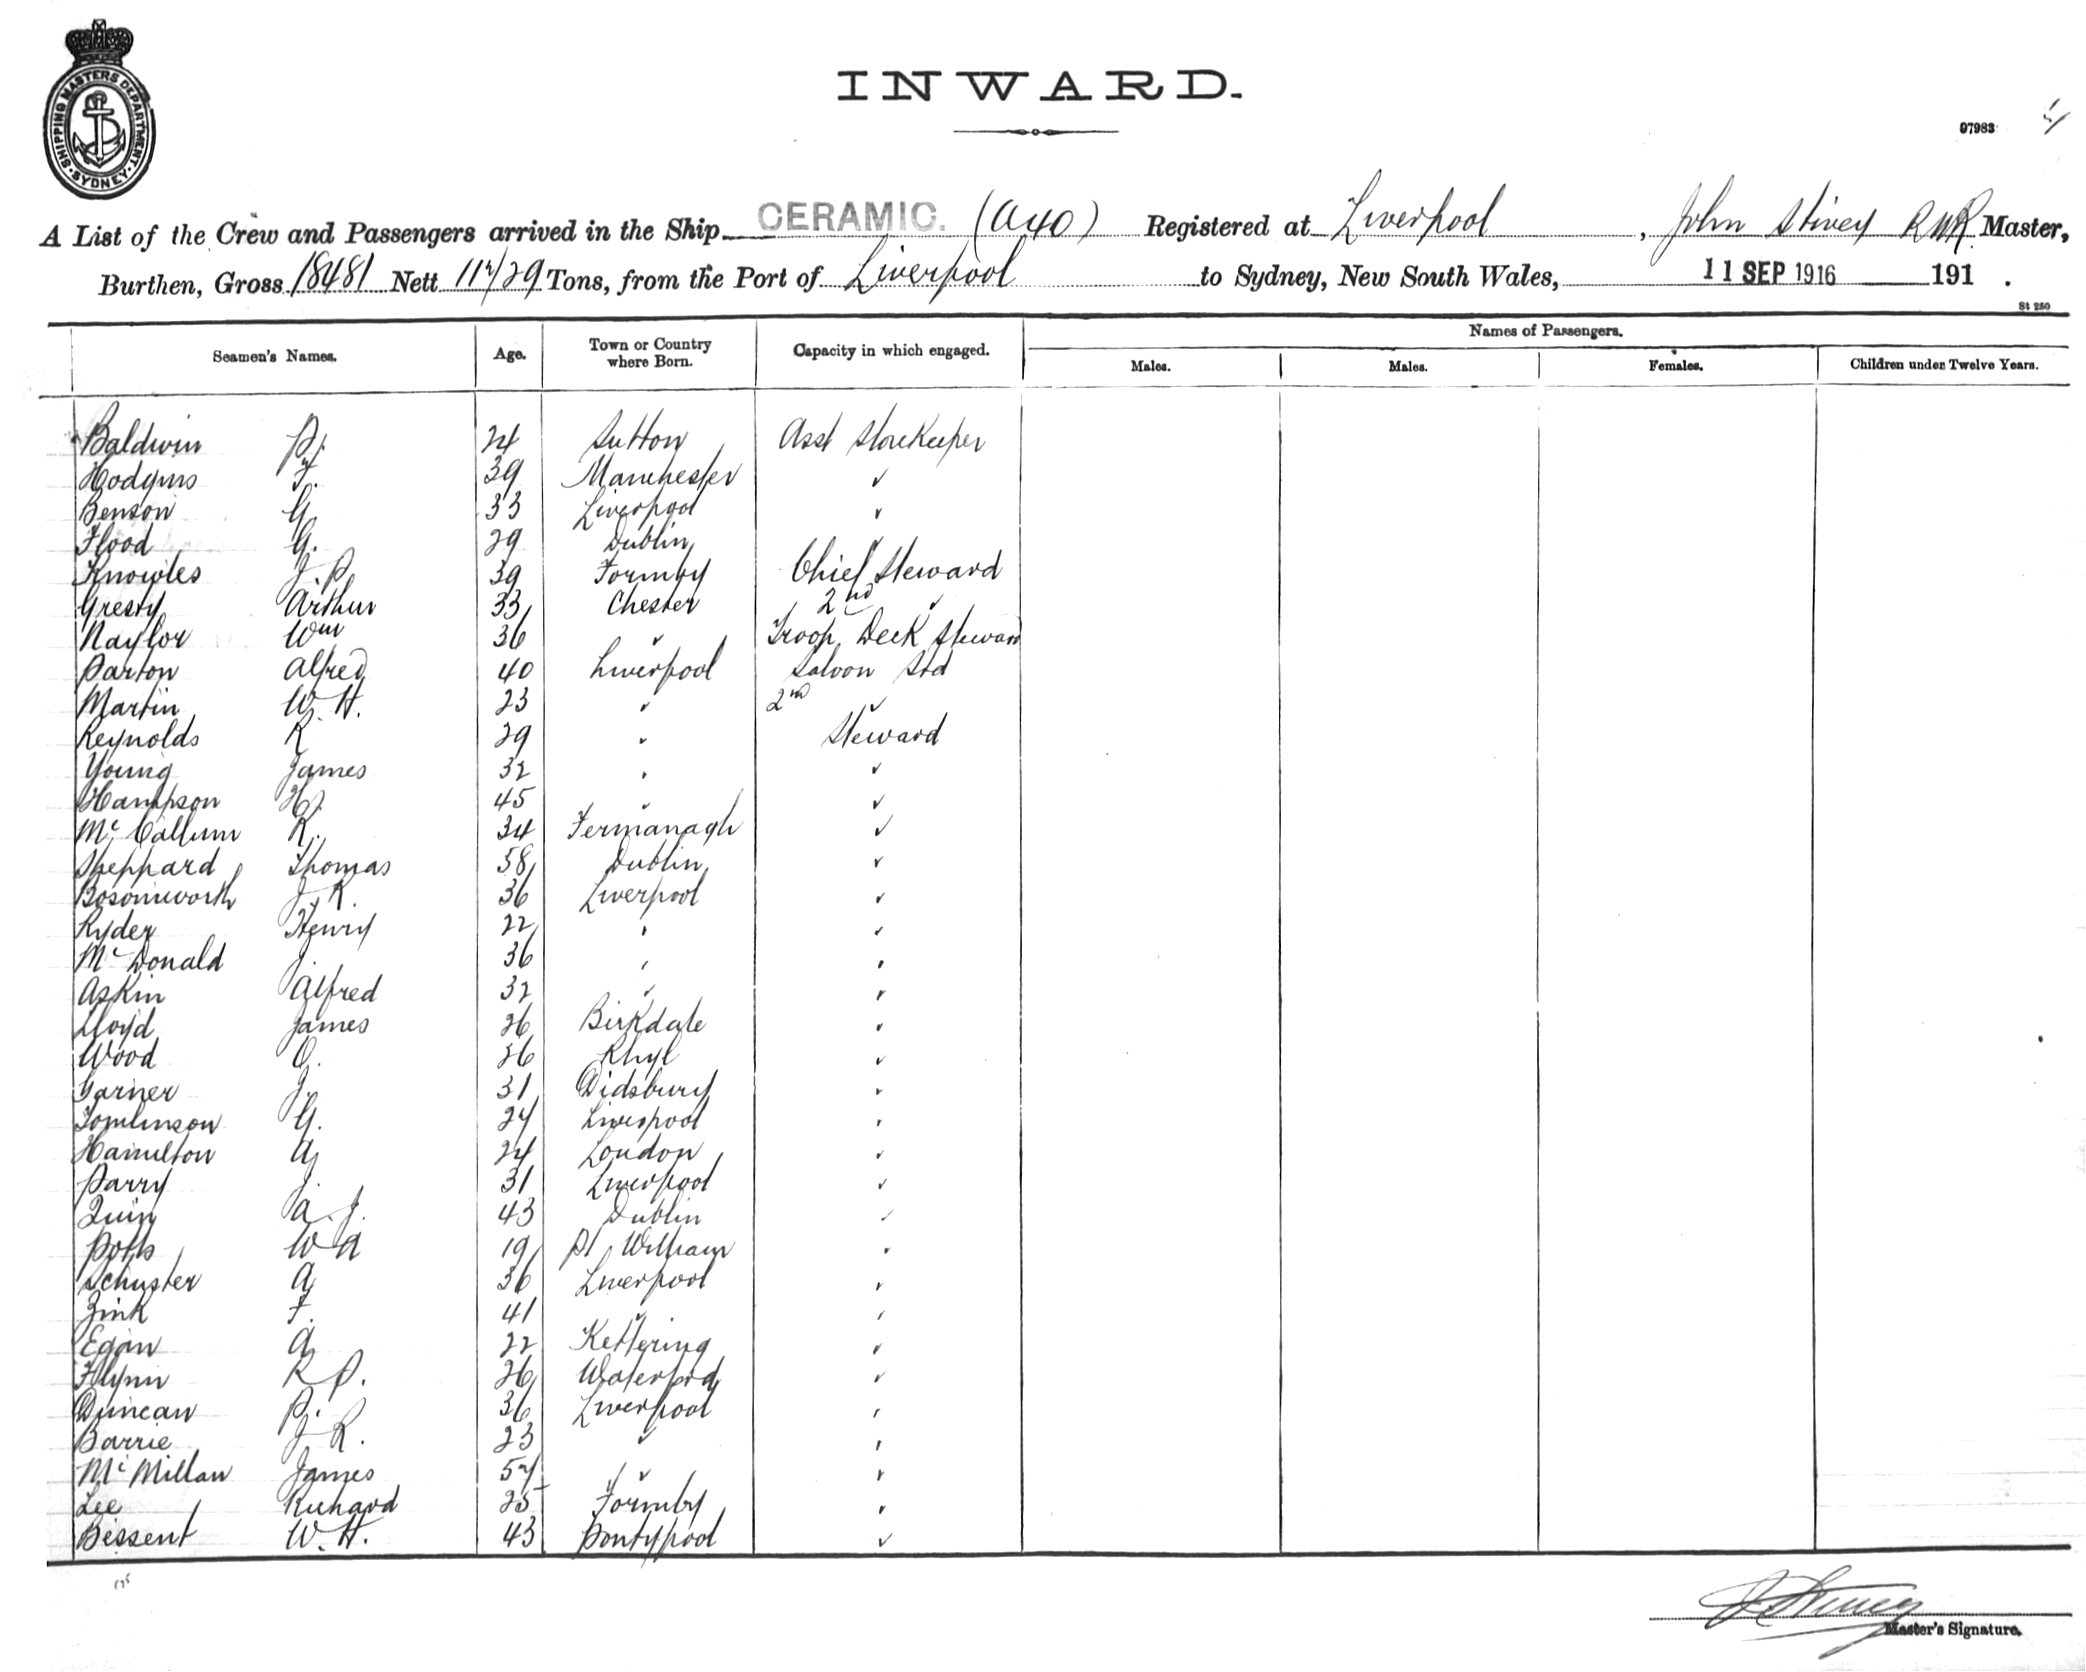 SHIPPING MASTERS DEPARTMENT
SYDNEY
INWARD.
97983
A List of the Crew and Passengers arrived in the Ship CERAMIC. (A40) Registered at Liverpool, John Stivey RNR Master,
Burthen, Gross 18481 Nett Tons, from the Port of Liverpool to Sydney, New South Wales, 11 SEP 1916 191 .
St 250
Seamen's Names. Age. Town or Country where Born. Capacity in which engaged. Names of Passengers.
Males. Males. Females. Children under Twelve Years.
Baldwin P. 24 Sutton Asst Storekeeper
Hodgins F. 39 Manchester ✓
Benson G. 33 Liverpool ✓
Flood G. 29 Dublin ✓
Knowles J.P. 39 Formby Chief Steward
Gresty Arthur 33 Chester 2nd ✓
Naylor Wm 36 ✓ Troop Deck Steward
Parton Alfred 40 Liverpool Saloon Std
Martin W.H. 23 ✓ 2nd ✓
Reynolds R 29 ✓ Steward
Young James 32 ✓ ✓
Hampson H. 45 ✓ ✓
McCallum R. 34 Fermanagh ✓
Sheppard Thomas 58 Dublin ✓
Bosomworth J.R. 36 Liverpool ✓
Ryder Henry 22 ✓ ✓
McDonald J. 36 ✓ ✓
Askin Alfred 32 ✓ ✓
Lloyd James 26 Birkdale ✓
Wood C. 26 Rhyl ✓
Garner J. 31 Didsbury ✓
Tomlinson G. 24 Liverpool ✓
Hamilton A 24 London ✓
Parry J. 31 Liverpool ✓
Quin A.J. 43 Dublin ✓
Potts W A 19 Pt William ✓
Schuster A 36 Liverpool ✓
Zink F. 41 ✓ ✓
Egan A 22 Kettering ✓
Flynn R P. 26 Waterford ✓
Duncan P. 36 Liverpool ✓
Barrie J R. 23 ✓ ✓
McMillan James ✓ ✓
Lee Richard 25 Formby ✓
Bessent W.H. 43 Pontypool ✓
J Stivey
Master's Signature.